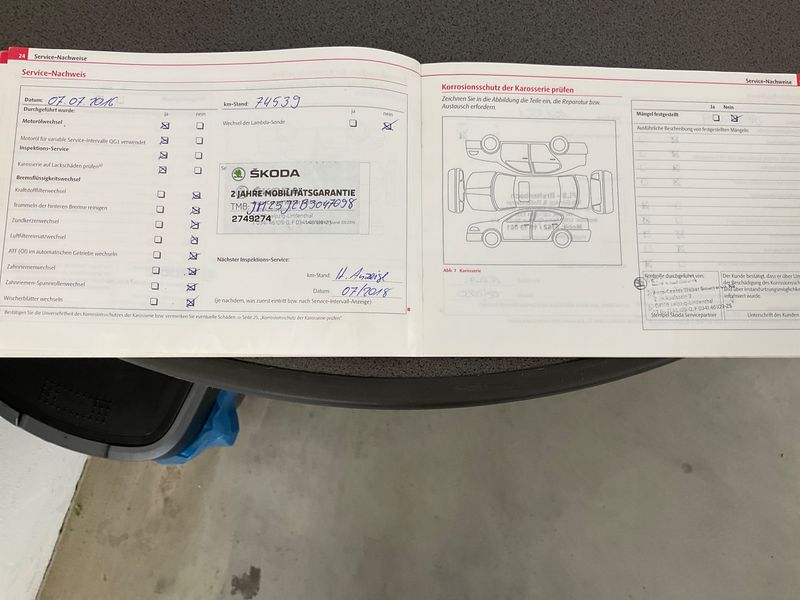 24 Service-Nachweise
Service-Nachweis
Datum: 07.07.2016
km-Stand: 74539
Durchgeführt wurde:
ja nein
nein
Motorölwechsel
Wechsel der Lambda-Sonde
Motoröl für variable Service-Intervalle (QG1) verwendet
Inspektions-Service
Karosserie auf Lackschäden prüfen
Bremsflüssigkeitswechsel
Kraftstofffilterwechsel
Trommeln der hinteren Bremse reinigen
Zündkerzenwechsel
Luftfiltereinsatzwechsel
ATF (Öl) im automatischen Getriebe wechseln
Zahnriemenwechsel
Zahnriemen-Spannrollenwechsel
Wischerblätter wechseln
ŠKODA
2 JAHRE MOBILITÄTSGARANTIE
TMB:
2749274
Nächster Inspektions-Service:
km-Stand: lt. Anzeige
Datum: 07/2018
(je nachdem, was zuerst eintritt bzw. nach Service-Intervall-Anzeige)
Bestätigen Sie die Unversehrtheit des Korrosionsschutzes der Karosserie bzw. vermerken Sie eventuelle Schäden ⇒ Seite 25, „Korrosionsschutz der Karosserie prüfen“.
Service-Nachweise
Korrosionsschutz der Karosserie prüfen
Zeichnen Sie in die Abbildung die Teile ein, die Reparatur bzw.
Austausch erfordern.
Abb. 7 Karosserie
Ja Nein
Mängel festgestellt
Ausführliche Beschreibung von festgestellten Mängeln:
Kontrolle durchgeführt von:
Stempel Škoda Servicepartner
Der Kunde bestätigt, dass er über
der Beschädigung des Korrosionsschutzes
und über Instandsetzungsmöglichkeiten
informiert wurde.
Unterschrift des Kunden